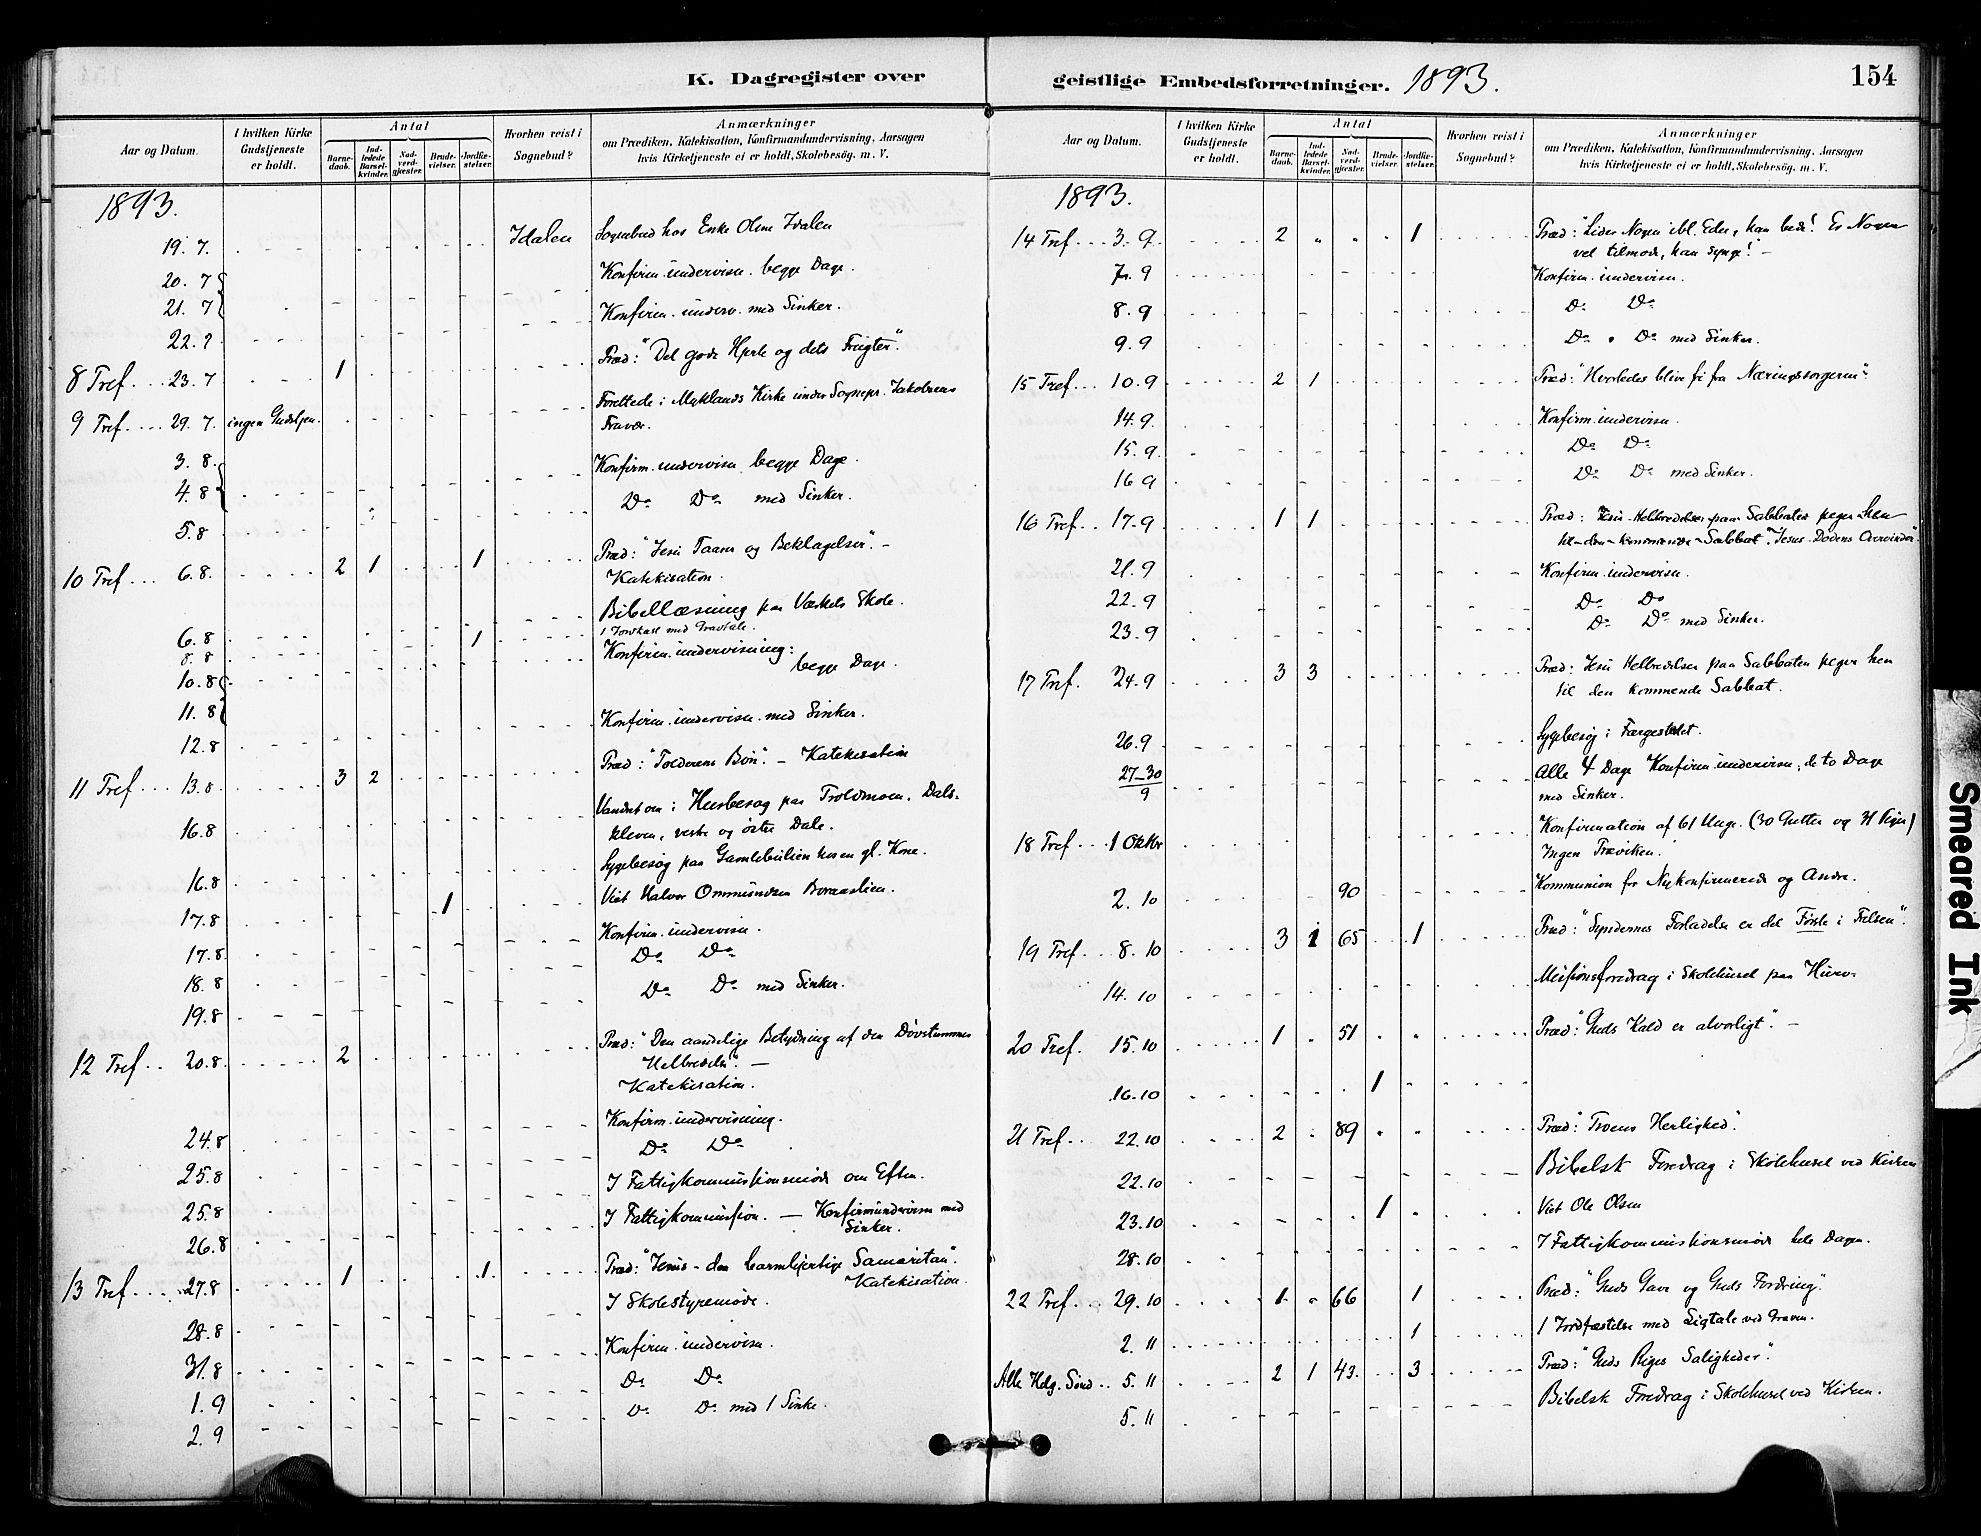 K. Dagregister over
Aar og Datum.
I hvilken Kirke Gudstjeneste er holdt.
Antal
Barnedaab.
Indledede Barselkvinder.
Nadverdgjæster.
Brudevielser.
Jordfæstelser.
Hvorhen reist i Sognebud?
Anmærkninger
om Prædiken, Katekisation, Konfirmandundervisning, Aarsagen
hvis Kirketjeneste ei er holdt, Skolebesög. m. V.
1893.
19. 7. Idalen Sognebud hos Enke Olene Idalen
20. 7 Konfirm. undervisn. begge Dage.
21. 7
22. 7 Konfirm. underv. med Sinker.
8 Tref. 23. 7 1 Præd: "Det gode Hjerte og dets Frugter".
9 Tref. 29. 7. ingen Gudstjen. Forrettede i Myklands Kirke under Sognepr. Jakobsens
Fravær.
3. 8. Konfirm. undervisn. begge Dage.
4. 8
5. 8 Do Do med Sinker.
10 Tref 6. 8. 2 1 1 Præd: "Jesu Taarer og Beklagelser". -
Katekisation.
6. 8 Bibellæsning paa Værkets Skole.
8. 8 1 1 Jordkast med Gravtale.
10. 8 Konfirm. undervisning:
begge Dage.
11. 8
12. 8 Konfirm. undervisn. med Sinker.
11 Tref 13. 8 3 2 Præd: "Tolderens Bön". - Katekisation
16. 8 Vandret om i Husbesøg paa Troldmoen, Dals-
kleven, vestre og östre Dale.
16. 8 Sygebesøg paa Gamlebulien hos en gl. Kone.
17. 8 1 Viet Halvor Ommundsen Boraaslien.
17. 8. Konfirm. undervisn.
18. 8 Do Do
19. 8 Do Do med Sinker.
12 Tref 20. 8. 2 Præd: "Den aandelige Betydning af den Døvstummes
Helbredelse". -
Katekisation.
24. 8 Konfirm. undervisning.
25. 8 Do Do
25. 8 I Fattigkommissionsmøde om Eftm.
26. 8 I Fattigkommission. - Konfirmundervisn med
Sinker.
13 Tref. 27. 8 1 1. Præd: "Jesus - den barmhjertige Samaritan".
Katekisation.
28. 8 I Skolestyremøde.
31. 8 Konfirm. undervisn.
1. 9 Do Do
2. 9 Do Do med 1 Sinke.
geistlige Embedsforretninger. 1893.
154
Aar og Datum.
I hvilken Kirke Gudstjeneste er holdt.
Antal
Barnedaab.
Indledede Barselkvinder.
Nadverdgjæster.
Brudevielser.
Jordfæstelser.
Hvorhen reist i Sognebud?
Anmærkninger
om Prædiken, Katekisation, Konfirmandundervisning, Aarsagen
hvis Kirketjeneste ei er holdt, Skolebesög. m. V.
1893.
14 Tref 3. 9. 2 " " " 1 Præd: "Lider Nogen ibl. Eder, han bede! Er Nogen
vel tilmode, han synge!" -
7. 9 Konfirm. undervisn.
8. 9 Do Do
9. 9 Do Do med Sinker.
15 Tref. 10. 9 2 1 Præd: "Hvorledes blive fri fra Næringssorgerne"
14. 9. Konfirm. undervisn.
15. 9 Do Do
16 9 Do Do med Sinker.
16 Tref. 17. 9 1 1 Præd: Jesu Helbredelser paa Sabbaten peger hen
til den kommende Sabbat. "Jesus Dødens Overvinder".
21. 9 Konfirm. undervisn.
22. 9 Do Do
23. 9 Do Do med Sinker.
17 Tref. 24. 9 3 3 Præd: Jesu Helbredelser paa Sabbaten peger hen
til den kommende Sabbat.
26. 9 Sygebesøg i Fargestedet.
27-30
9
Alle 4 Dage Konfirm. undervisn; de to Dage
med Sinker.
18 Tref. 1 Oktbr Konfirmation af 61 Unge. (30 Gutter og 31 Piger)
Ingen Præviken.
2. 10 90 Kommunion for Nykonfirmerede og Andre.
19 Tref. 8. 10 3 1 65 1 Præd: "Syndernes Forladelse er det Første i Frelsen".
14. 10 Missionsforedrag i Skolehuset paa
20 Tref. 15. 10 1 " 51 " " Præd: "Guds Kald er alvorligt". -
16. 10 1
21 Tref. 22. 10 2 " 89 " " Præd: "Troens Herlighed".
22. 10 Bibelsk Foredrag i Skolehuset ved Kirken
23. 10 1 " Viet Ole Olsen
28. 10 I Fattigkommissionsmøde hele Dagen.
22 Tref. 29. 10 1 " 66 1 Præd: "Guds Gave og Guds Fordring"
2. 11 1 1 Jordfæstelse med Ligtale ved Graven.
Alle Helg. Sönd. 5. 11 2 1 43 3 Præd: "Guds Riges Saligheder".
5. 11 Bibelsk Foredrag i Skolehuset ved Kirken.
Smeared Ink